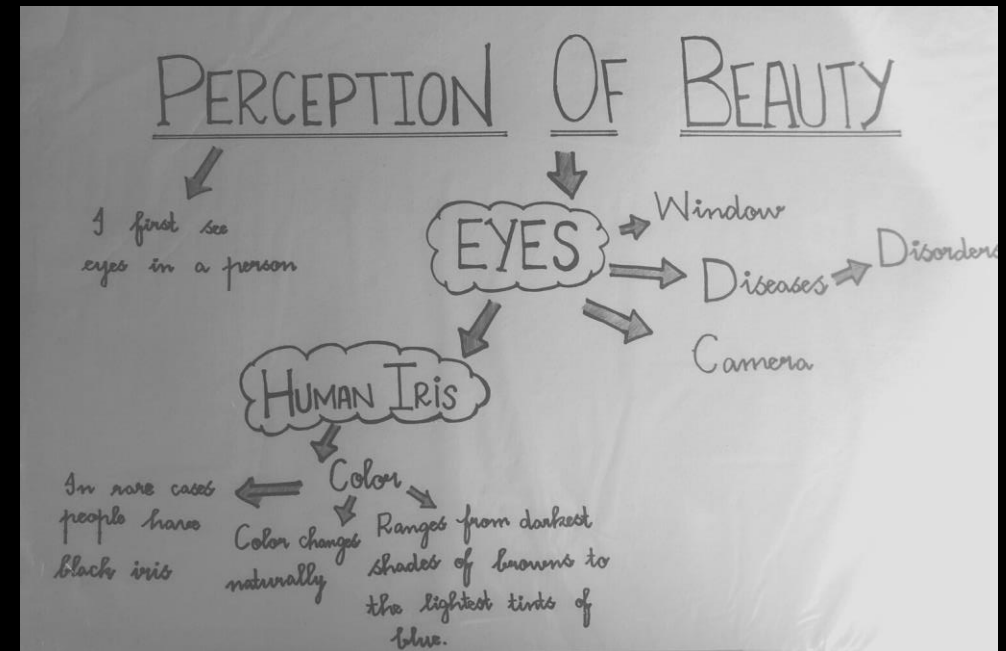 PERCEPTION OF BEAUTY
I first see
eyes in a person
EYES
Window
Diseases
Disorders
Camera
HUMAN IRIS
Color
In rare cases
people have
black iris
Color changes
naturally
Ranges from darkest
shades of browns to
the lightest tints of
blue.